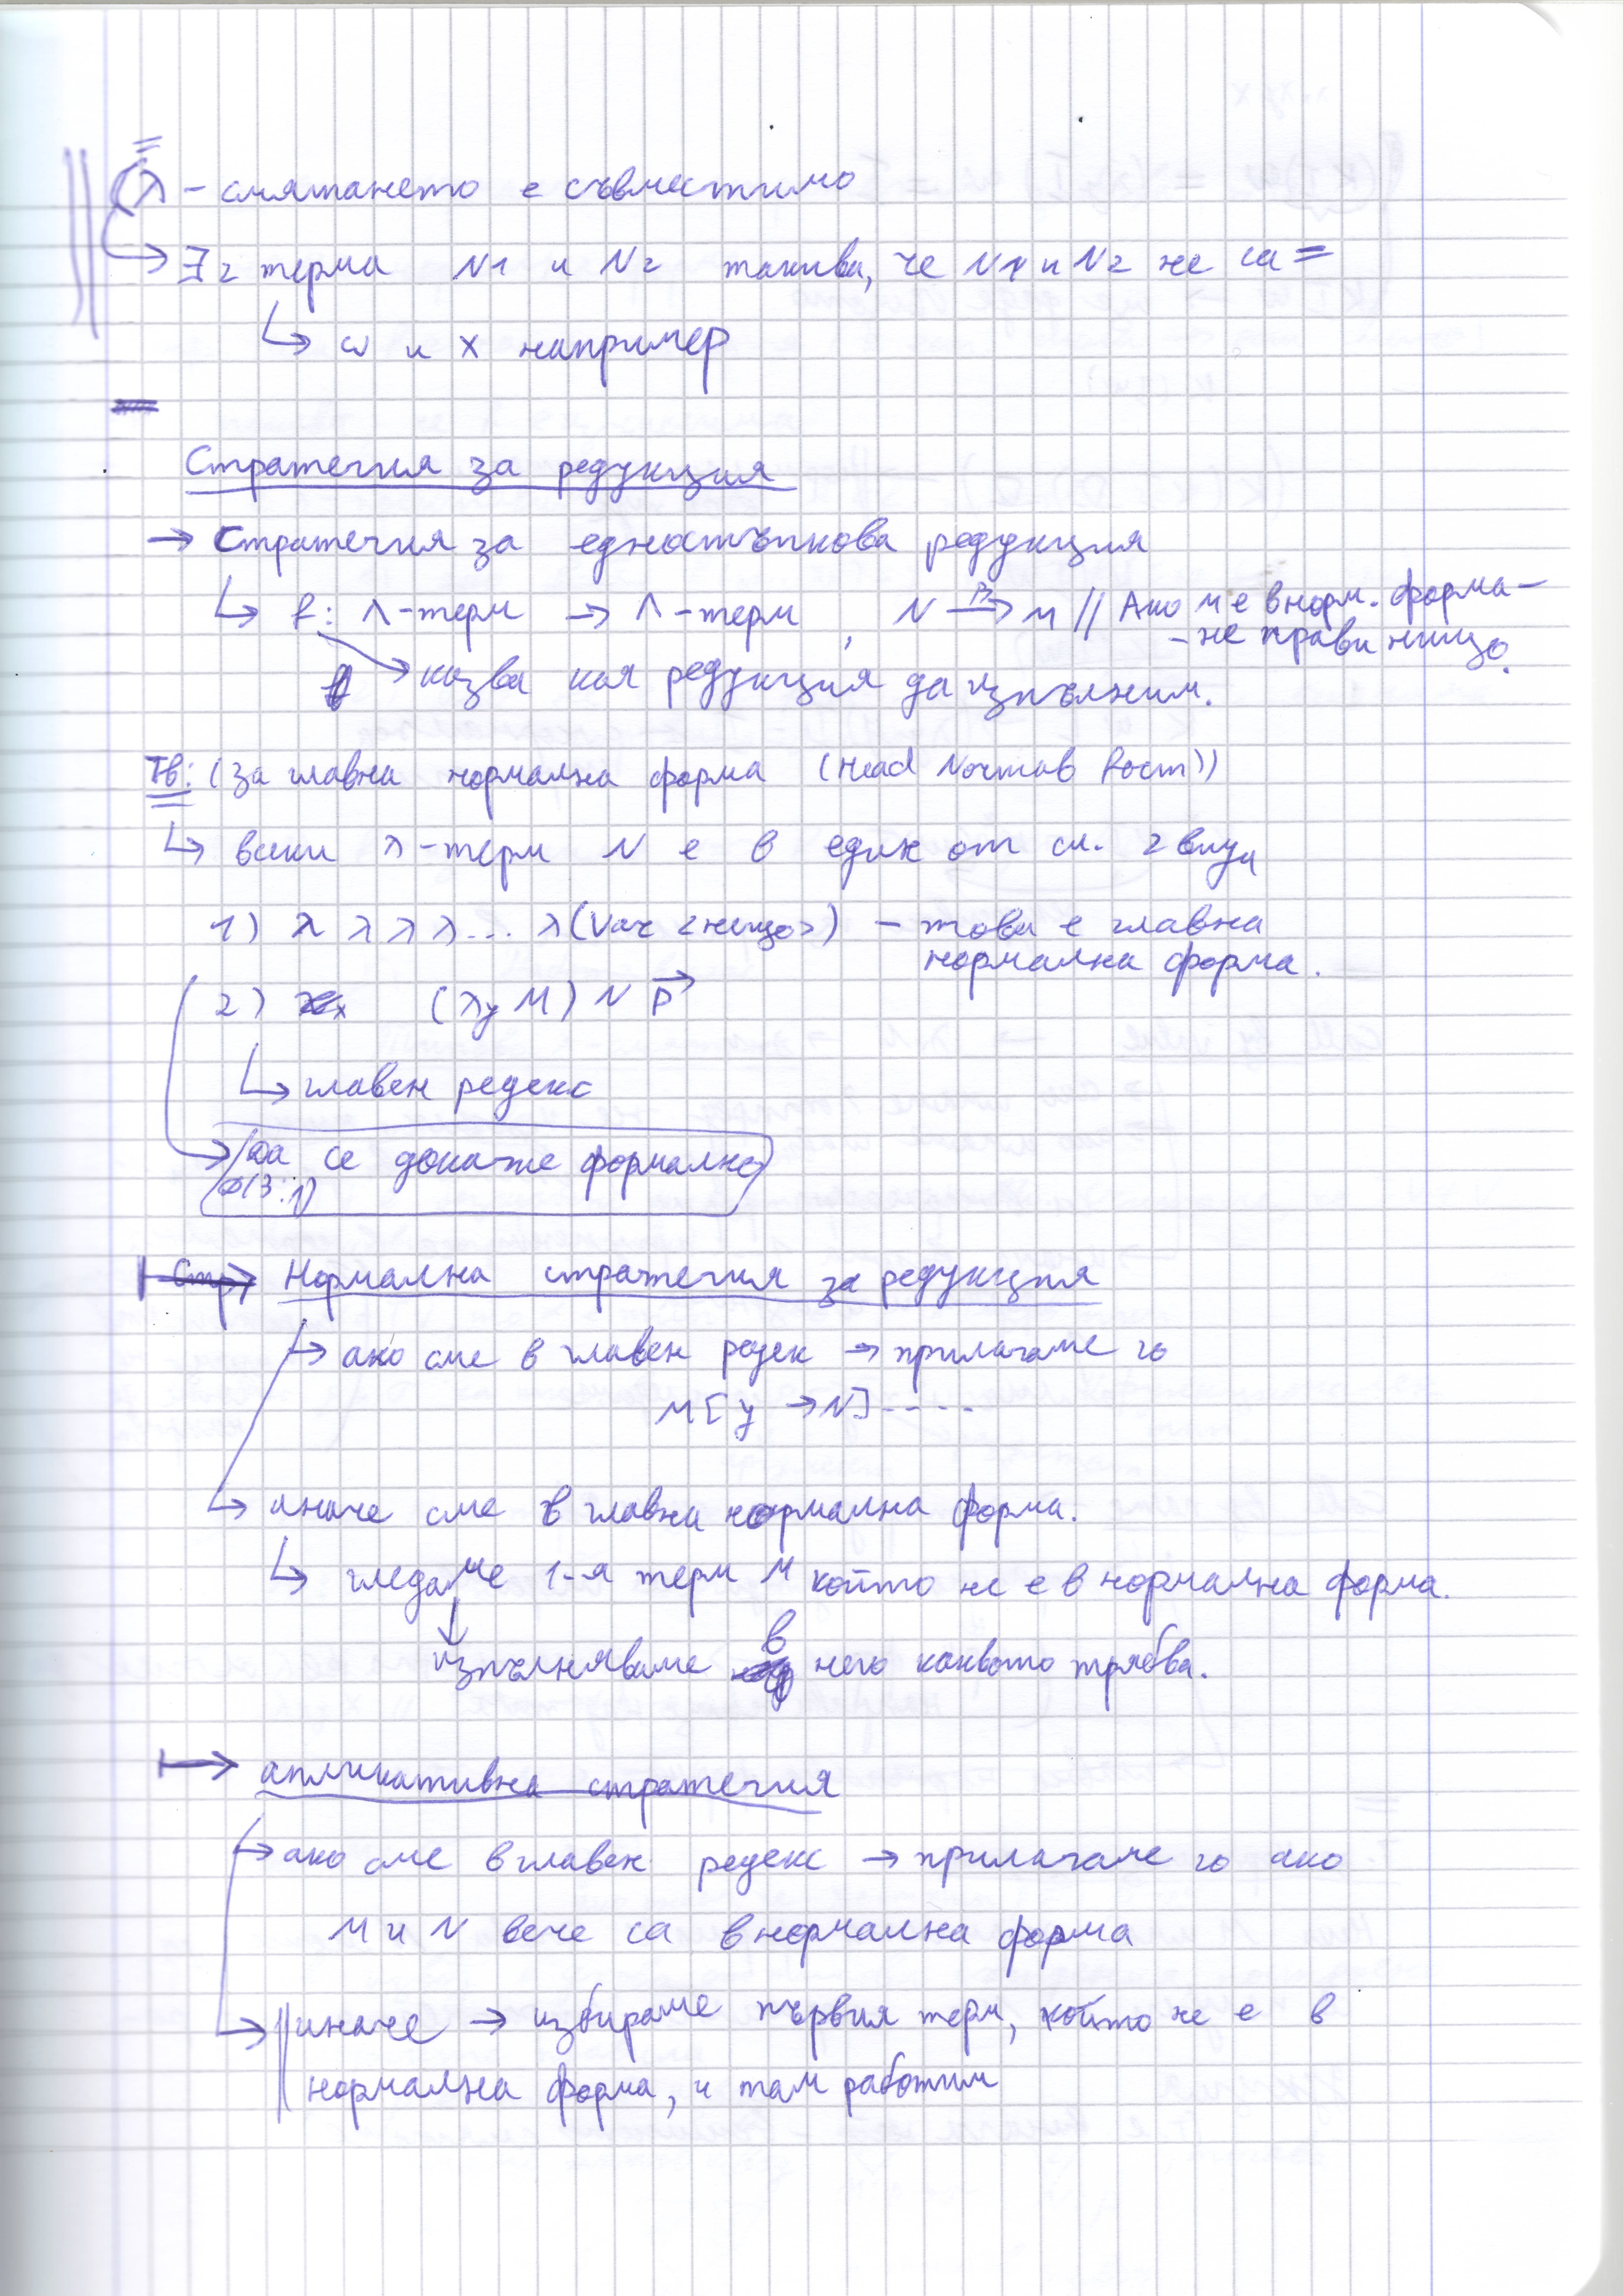 λ - смятането е съвместимо
→ ∃ 2 терма N1 и N2 такива, че N1 и N2 не са =
↳ ω и x например
Стратегия за редукция
→ Стратегия за едностъпкова редукция
↳ f: Λ-терм → Λ-терм , N →β M // Ако M е в норм. форма -
- не прави нищо.
→ казва коя редукция да изпълним.
Тв: (за главна нормална форма (Head Normal Form))
↳ всеки λ-терм N е в един от сл. 2 вида
1) λ λ λ λ... λ(Var <нещо>) - това е главна
нормална форма.
2) (λy M) N P⃗
↳ главен редекс
→ Да се докаже формално
Нормална стратегия за редукция
↳ ако сме в главен редек → прилагаме го
M[y → N]----
↳ иначе сме в главна нормална форма.
↳ гледаме 1-я терм M който не е в нормална форма.
↓
изпълняваме в него каквото трябва.
↦ апликативна стратегия
→ ако сме в главен редекс → прилагаме го ако
M и N вече са в нормална форма
→ иначе → избираме първия терм, който не е в
нормална форма, и там работим